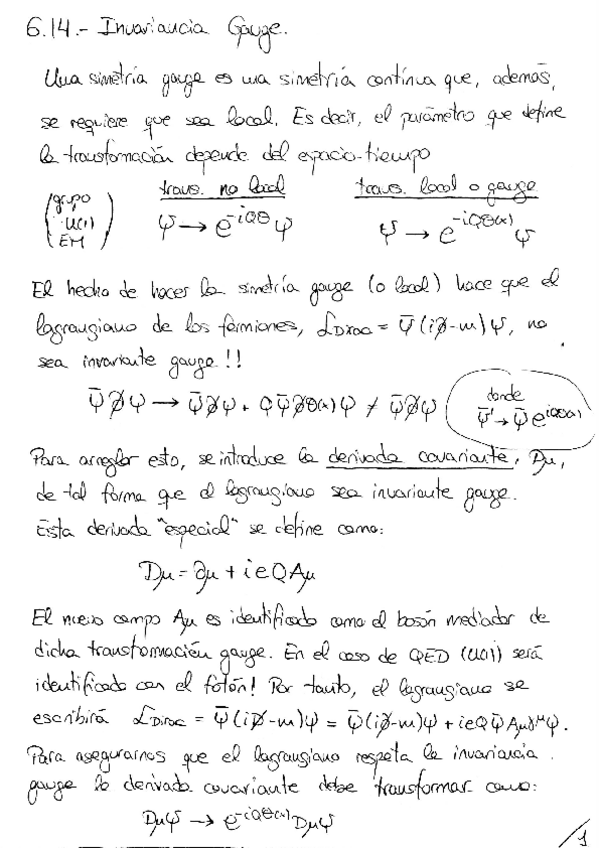 6.14.- Invariancia Gauge.
Una simetría gauge es una simetría contínua que, además,
se requiere que sea local. Es decir, el parámetro que define
la transformación depende del espacio-tiempo
(grupo U(1) EM)
trans. no local
ψ → e^{-iQθ} ψ
trans. local o gauge
ψ → e^{-iQθ(x)} ψ
El hecho de hacer la simetría gauge (o local) hace que el
lagrangiano de los fermiones, ℒ_Dirac = ψ̄(i∂̸-m)ψ, no
sea invariante gauge!!
ψ̄∂̸ψ → ψ̄∂̸ψ + Qψ̄∂̸θ(x)ψ ≠ ψ̄∂̸ψ
donde
ψ̄' → ψ̄ e^{iQθ(x)}
Para arreglar esto, se introduce la derivada covariante, Dμ,
de tal forma que el lagrangiano sea invariante gauge.
Esta derivada "especial" se define como:
Dμ = ∂μ + ieQAμ
El nuevo campo Aμ es identificado como el bosón mediador de
dicha transformación gauge. En el caso de QED (U(1)) será
identificado con el fotón! Por tanto, el lagrangiano se
escribirá ℒ_Dirac = ψ̄(iD̸-m)ψ = ψ̄(i∂̸-m)ψ + ieQψ̄Aμγ^μψ.
Para asegurarnos que el lagrangiano respeta la invariancia
gauge la derivada covariante debe transformar como:
Dμψ → e^{-iQθ(x)} Dμψ
/1